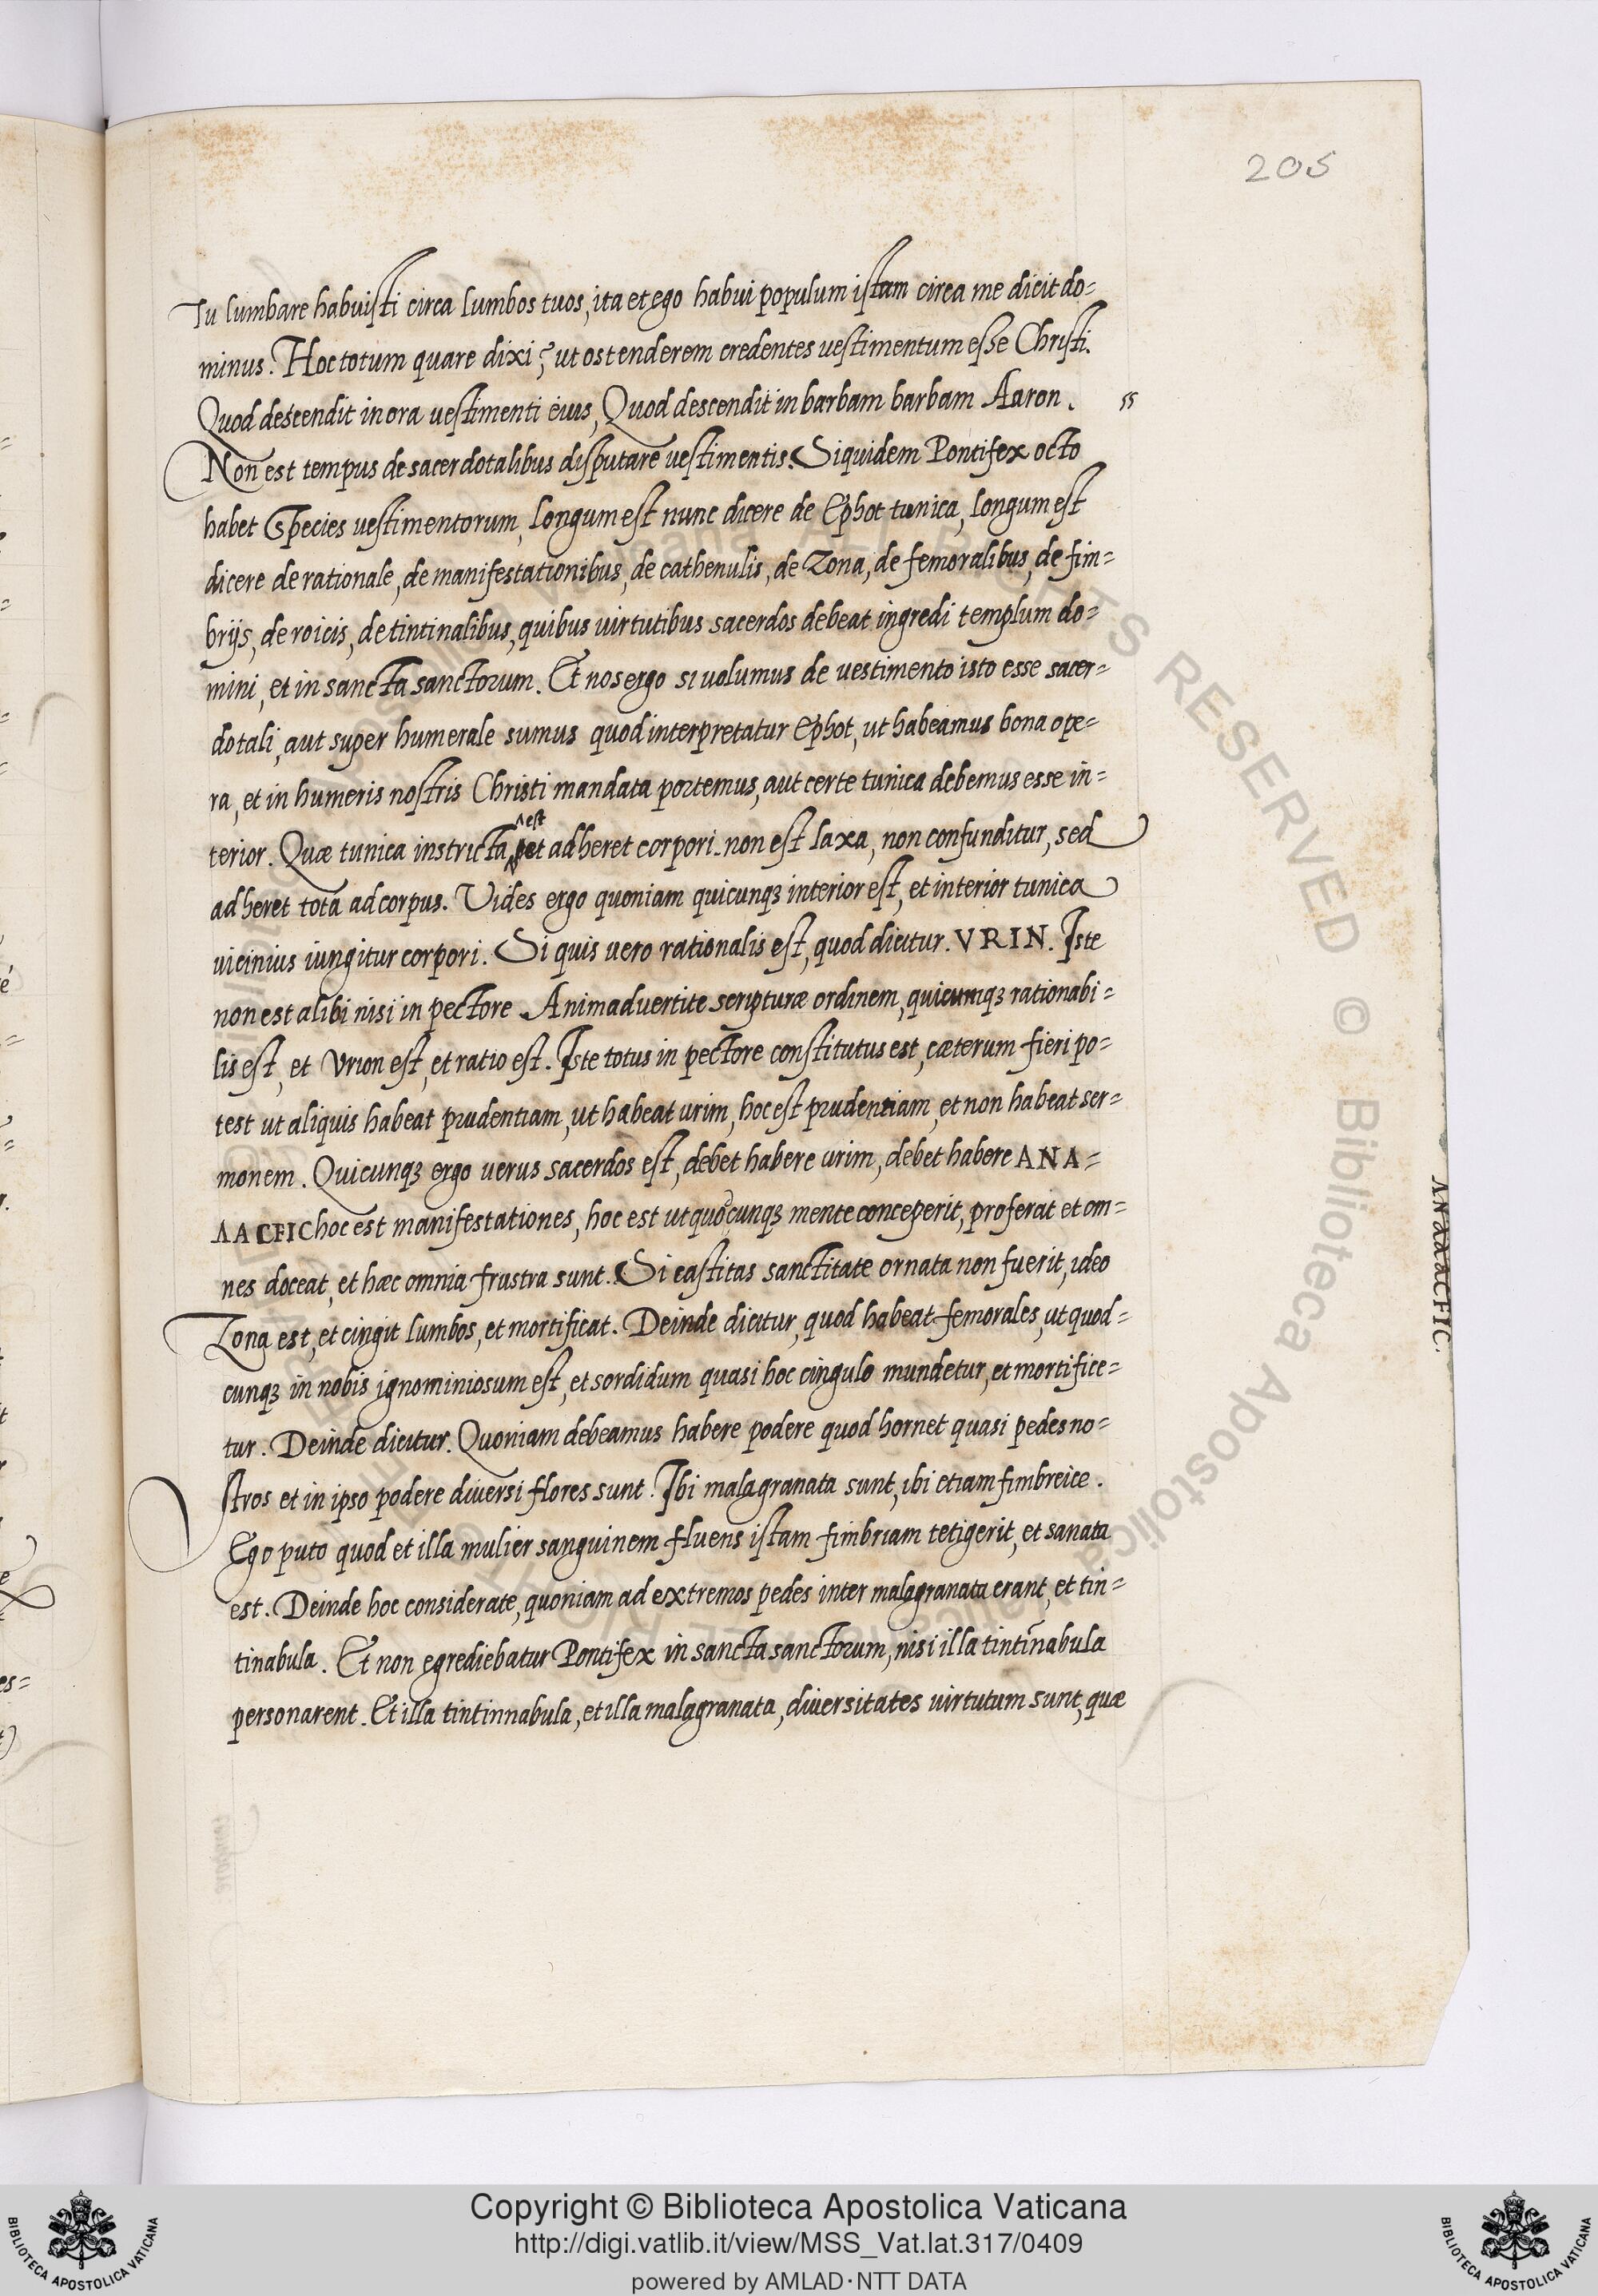 205
Tu lumbare habuisti circa lumbos tuos, ita et ego habui populum istam circa me dicit do=
minus. Hoc totum quare dixi? ut ostenderem credentes uestimentum esse Christi.
Quod descendit in ora uestimenti eius, Quod descendit in barbam barbam Aaron.
Non est tempus de sacerdotalibus disputare uestimentis. Siquidem Pontifex octo
habet Species uestimentorum, Longum est nunc dicere de Ephot tunica, longum est
dicere de rationale, de manifestationibus, de cathenulis, de Zona, de femoralibus, de fim=
brijs, de roicis, de tintinalibus, quibus uirtutibus sacerdos debeat ingredi templum do=
mini, et in sancta sanctorum. Et nos ergo si uolumus de vestimento isto esse sacer=
dotali, aut super humerale sumus quod interpretatur Ephot, ut habeamus bona ope=
ra, et in humeris nostris Christi mandata portemus, aut certe tunica debemus esse in=
est
terior. Quæ tunica instricta, et adheret corpori. non est laxa, non confunditur, sed
adheret tota ad corpus. Vides ergo quoniam quicunqꝫ interior est, et interior tunica
uicinius iungitur corpori. Si quis uero rationalis est, quod dicitur. VRIN. Iste
non est alibi nisi in pectore. Animaduertite scripturæ ordinem, quicumqꝫ rationabi=
lis est, et Vrion est, et ratio est. Iste totus in pectore constitutus est, cæterum fieri po=
test ut aliquis habeat prudentiam, ut habeat urim, hoc est prudentiam, et non habeat ser=
monem. Quicunqꝫ ergo uerus sacerdos est, debet habere urim, debet habere ANA=
ΛACFIC hoc est manifestationes, hoc est ut quocunqꝫ mente conceperit, proferat et om=
nes doceat, et hæc omnia frustra sunt. Si castitas sanctitate ornata non fuerit, ideo
Zona est, et cingit lumbos, et mortificat. Deinde dicitur, quod habeat femorales, ut quod=
cunqꝫ in nobis ignominiosum est, et sordidum quasi hoc cingulo mundetur, et mortifice=
tur. Deinde dicitur. Quoniam debeamus habere podere quod hornet quasi pedes no=
stros et in ipso podere diuersi flores sunt. Ibi malagranata sunt, ibi etiam fimbreice.
Ego puto quod et illa mulier sanguinem fluens istam fimbriam tetigerit, et sanata
est. Deinde hoc considerate, quoniam ad extremos pedes inter malagranata erant, et tin=
tinabula. Et non egrediebatur Pontifex in sancta sanctorum, nisi illa tintinnabula
personarent. Et illa tintinnabula, et illa malagranata, diuersitates uirtutum sunt, quæ
Copyright © Biblioteca Apostolica Vaticana
http://digi.vatlib.it/view/MSS_Vat.lat.317/0409
powered by AMLAD·NTT DATA
BIBLIOTECA APOSTOLICA VATICANA
BIBLIOTECA APOSTOLICA VATICANA